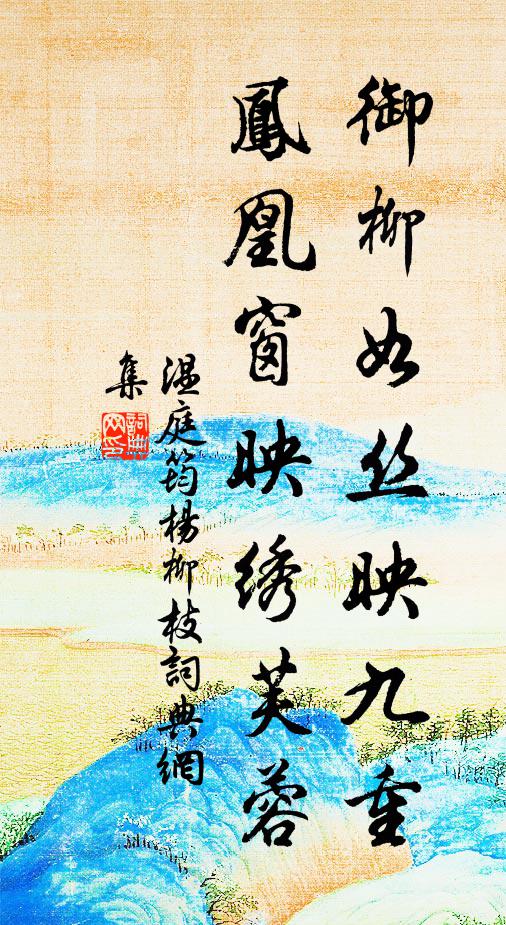 御柳如丝映九重
鳳凰窗映绣芙蓉
温庭筠楊柳枝詞典網
集
詞典
网印